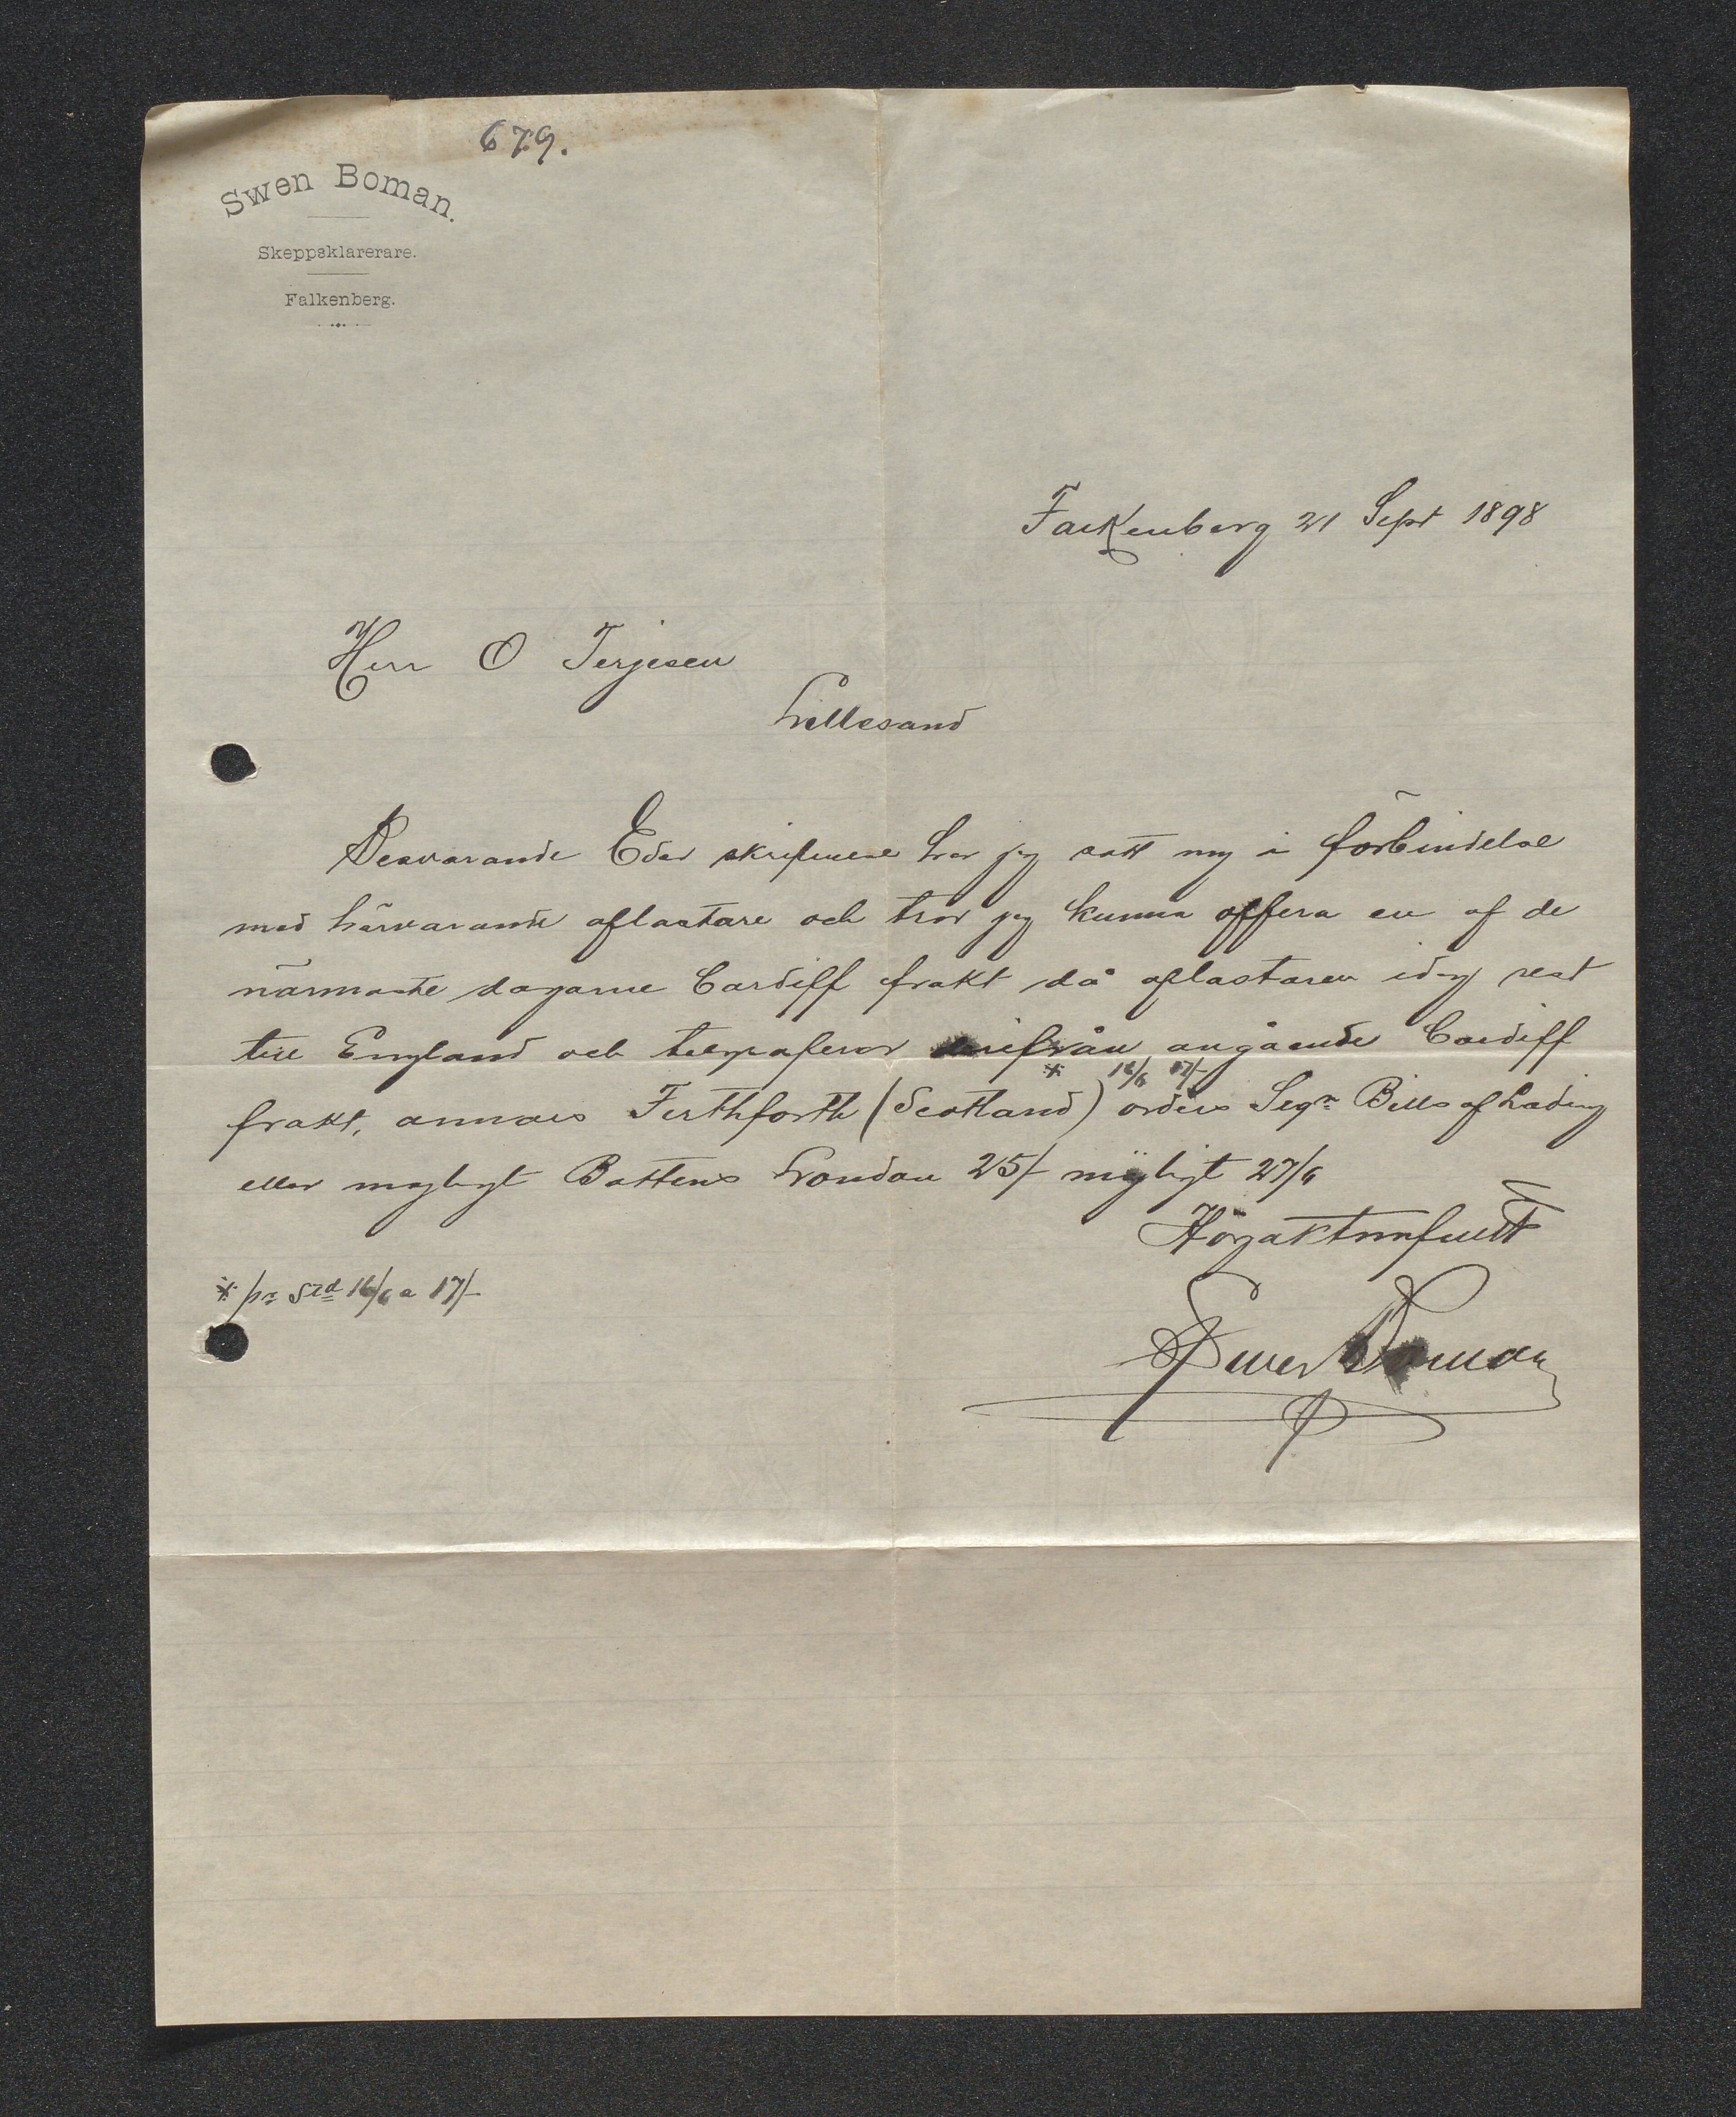 679.
Swen Boman.
Skeppsklarerare.
Falkenberg.
Falkenberg 21 Sept 1898
Herr O Terjesen
Lillesand
Besvarande Eder skrifvelse har jag satt mig i förbindelse
med härvarande aflastare och tror jag kunna offera en af de
närmaste dagarne Cardiff frakt då aflastaren idag rest
till England och telegraferar derifrån angående Cardiff
* 16/6 17/-
frakt, annars Firthforth (Scotland) orders Segr Bills of Lading
eller mögligt Battens London 25/- möjligt 27/6
Högaktningsfullt
* pr Std 16/6 a 17/-
Swen Boman